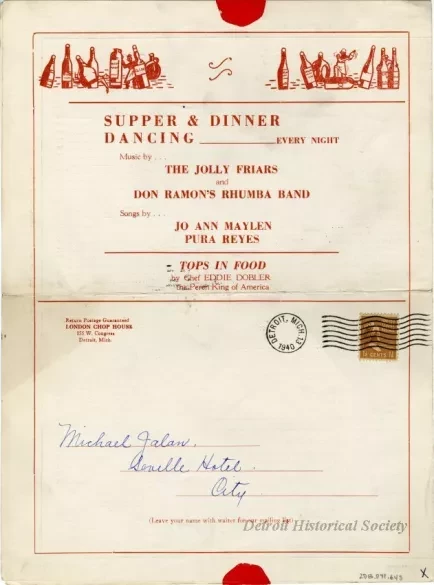 SUPPER & DINNER
DANCING EVERY NIGHT
Music by . . .
THE JOLLY FRIARS
and
DON RAMON'S RHUMBA BAND
Songs by . . .
JO ANN MAYLEN
PURA REYES
TOPS IN FOOD
by Chef EDDIE DOBLER
the Perch King of America
Return Postage Guaranteed
LONDON CHOP HOUSE
155 W. Congress
Detroit, Mich.
DETROIT, MICH. 13
1940
1½ CENTS 1½
Michael Jalan.
Seville Hotel.
City.
(Leave your name with waiter for our mailing list)
Detroit Historical Society
X